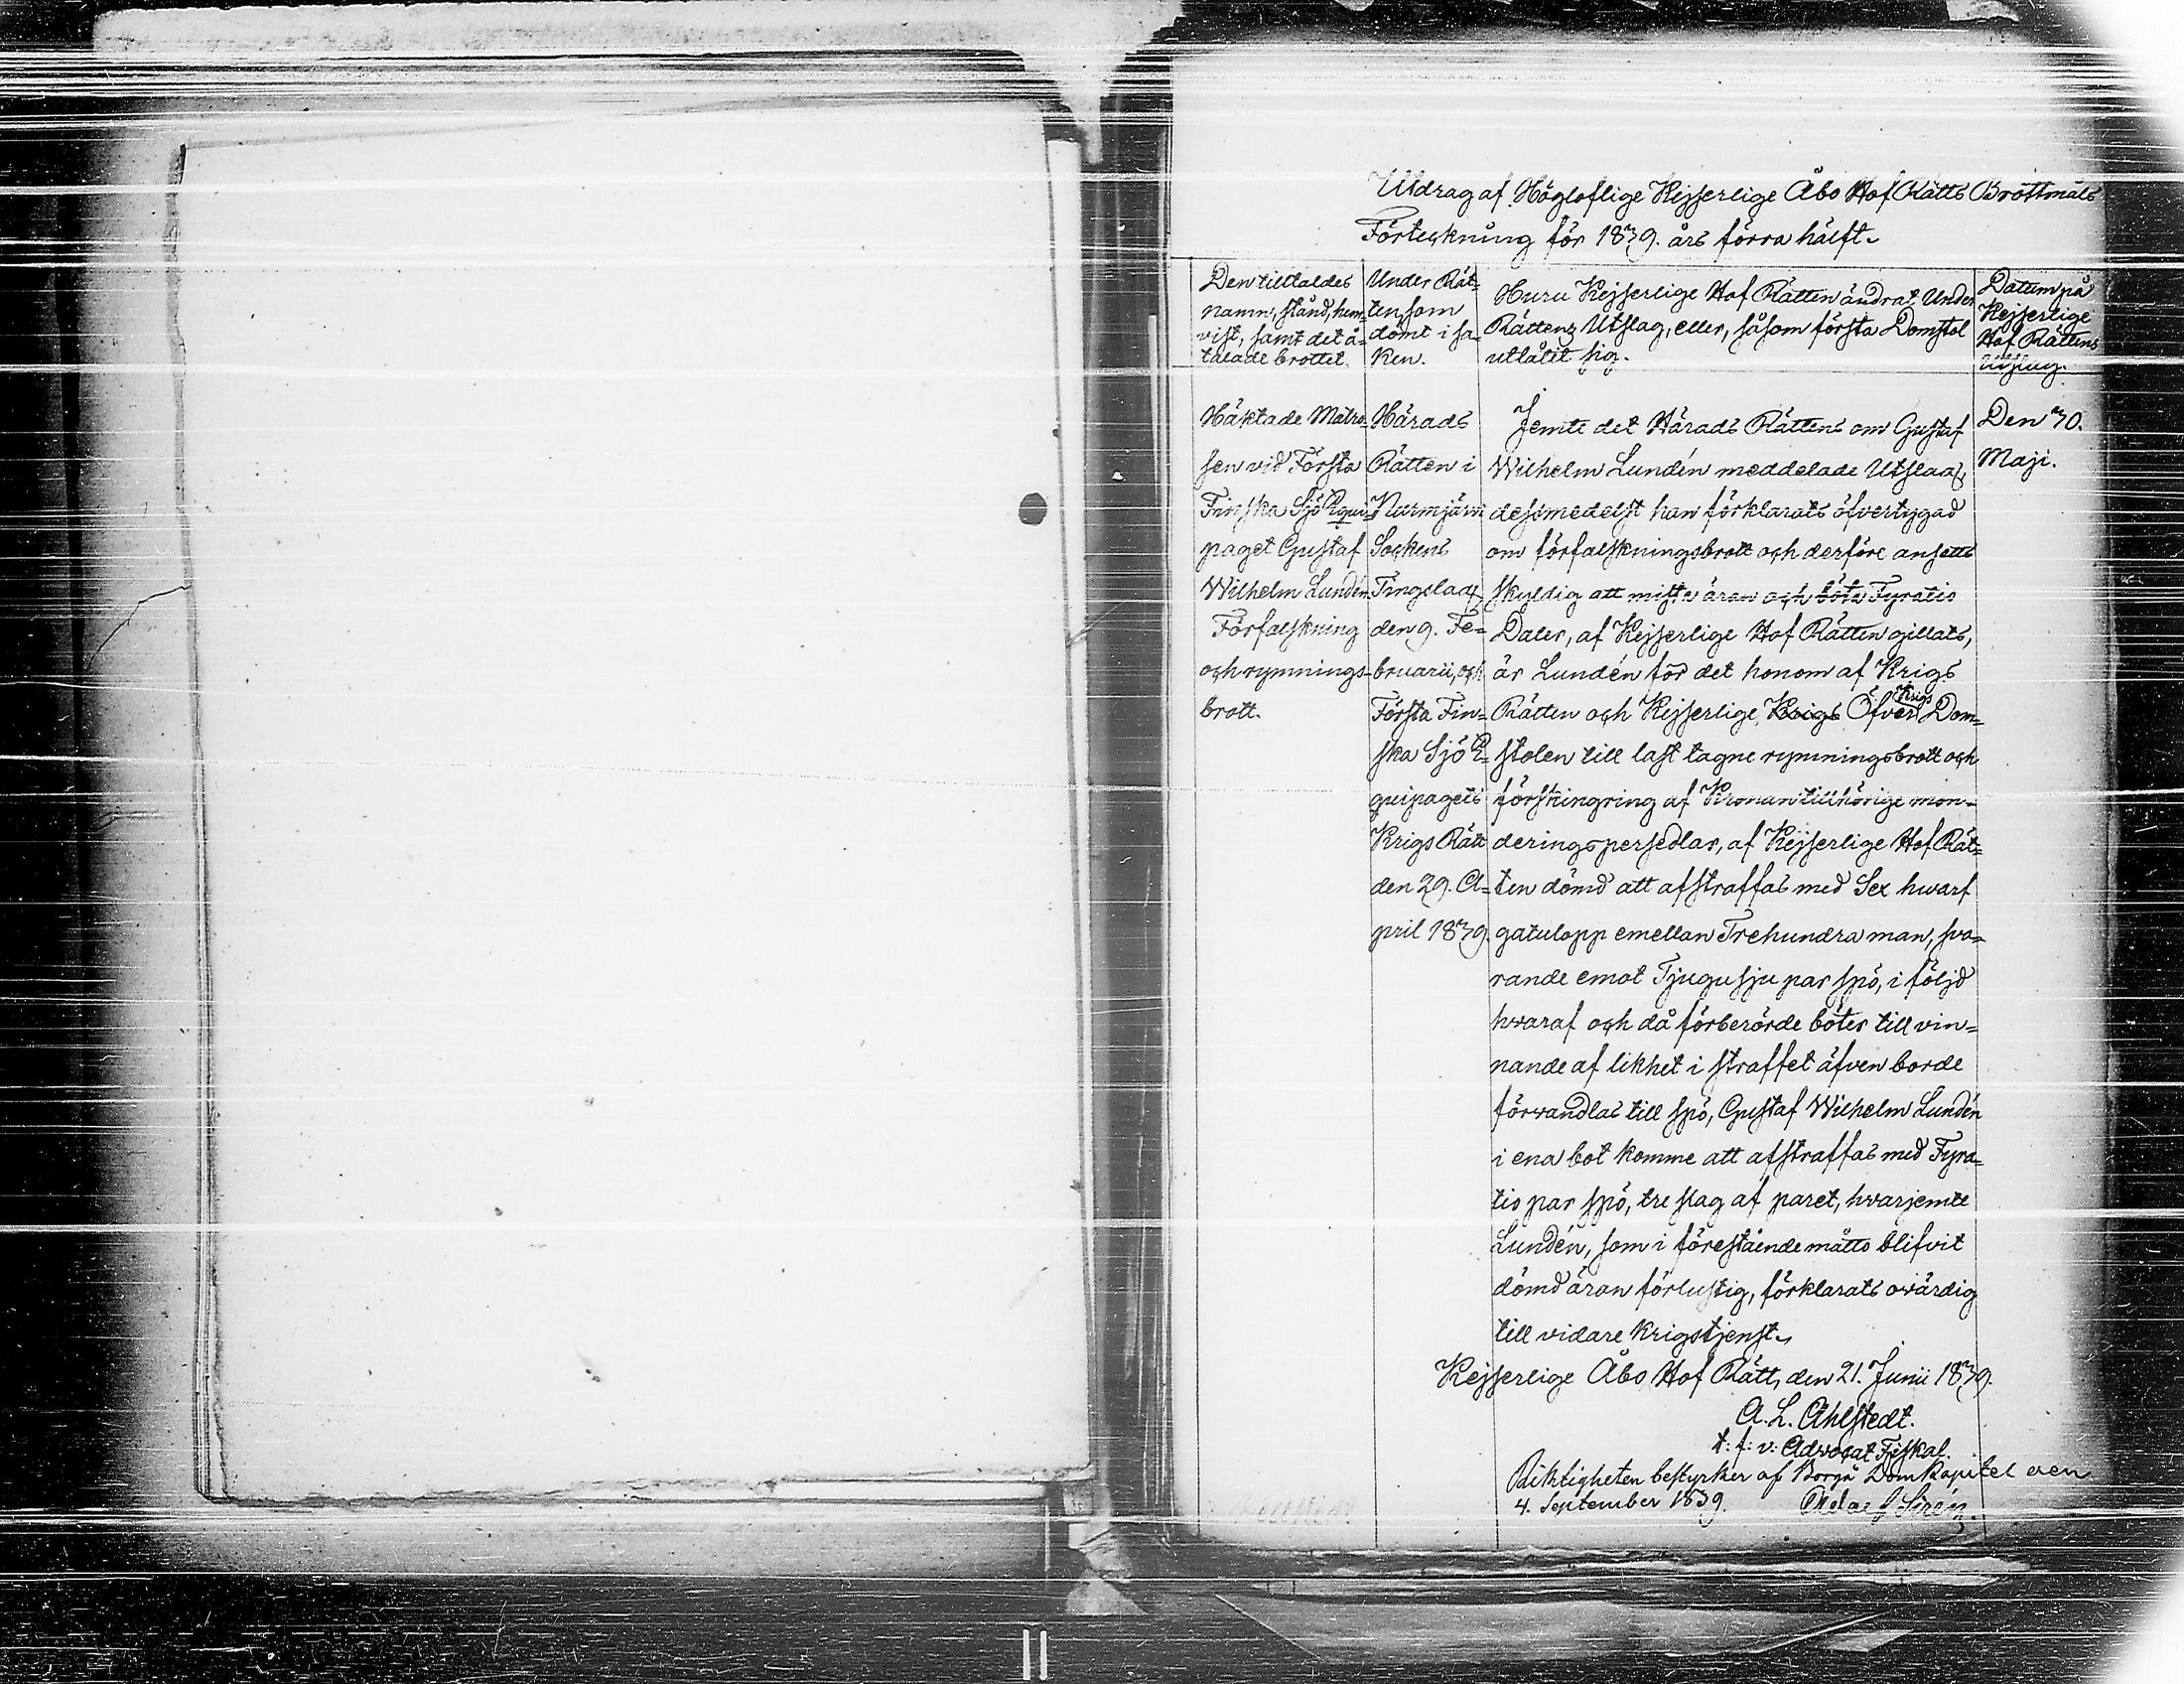 Utdrag af Högloflige Kejserlige Åbo Hof Rätts Brottmåls
Förteckning för 1839. års förra hälft.
Den tilltaldes
namn, stånd, hem-
vist, samt det å-
talade brottet.
Under Rät-
ten, som
dömt i sa-
ken.
Huru Kejserlige Hof Rätten ändrat Under
Rättens Utslag, eller, såsom första Domstol
utlåtit sig.
Datum på
Kejserlige
Hof Rättens
Utslag.
Häktade Matro-
sen vid Första
Finska Sjö Equi-
paget Gustaf
Wilhelm Lundén
Förfalskning
och rymnings-
brott.
Härads
Rätten i
Nurmjärvi
Sockens
Tingslag
den 9. Fe-
bruarii, och
Första Fin-
ska Sjö E-
quipagets
Krigs Rätt
den 29. A-
pril 1839.
Jemte det Härads Rättens om Gustaf
Wilhelm Lundén meddelade Utslag,
dessmedelst han förklarats öfvertygad
om förfalskningsbrott och derföre ansetts
skyldig att mista äran och böta Fyratio
Daler, af Kejserlige Hof Rätten gillats,
är Lundén för det honom af Krigs
Rätten och Kejserlige Krigs Öfver Krigs Dom-
stolen till last tagne rymningsbrott och
förskingring af Kronan tillhörige mon-
deringspersedlar, af Kejserlige Hof Rät-
ten dömd att afstraffas med Sex hwarf
gatulopp emellan Trehundra man, sva-
rande emot Tjugusju par spö, i följd
hvaraf och då förberörde böter till vin-
nande af likhet i straffet äfven borde
förvandlas till spö, Gustaf Wilhelm Lundén
i ena bot komme att afstraffas med Fyra-
tio par spö, tre slag af paret, hvarjemte
Lundén, som i förestående måtto blifvit
dömd äran förlustig, förklarats ovärdig
till vidare krigstjenst.
Den 30.
Maji.
Kejserlige Åbo Hof Rätt, den 21. Junii 1839.
A. L. Ahlstedt.
t: f: v: Advocat Fiskal.
Riktigheten bestyrker af Borgå DomKapitel den
4. September 1839. Sirén.